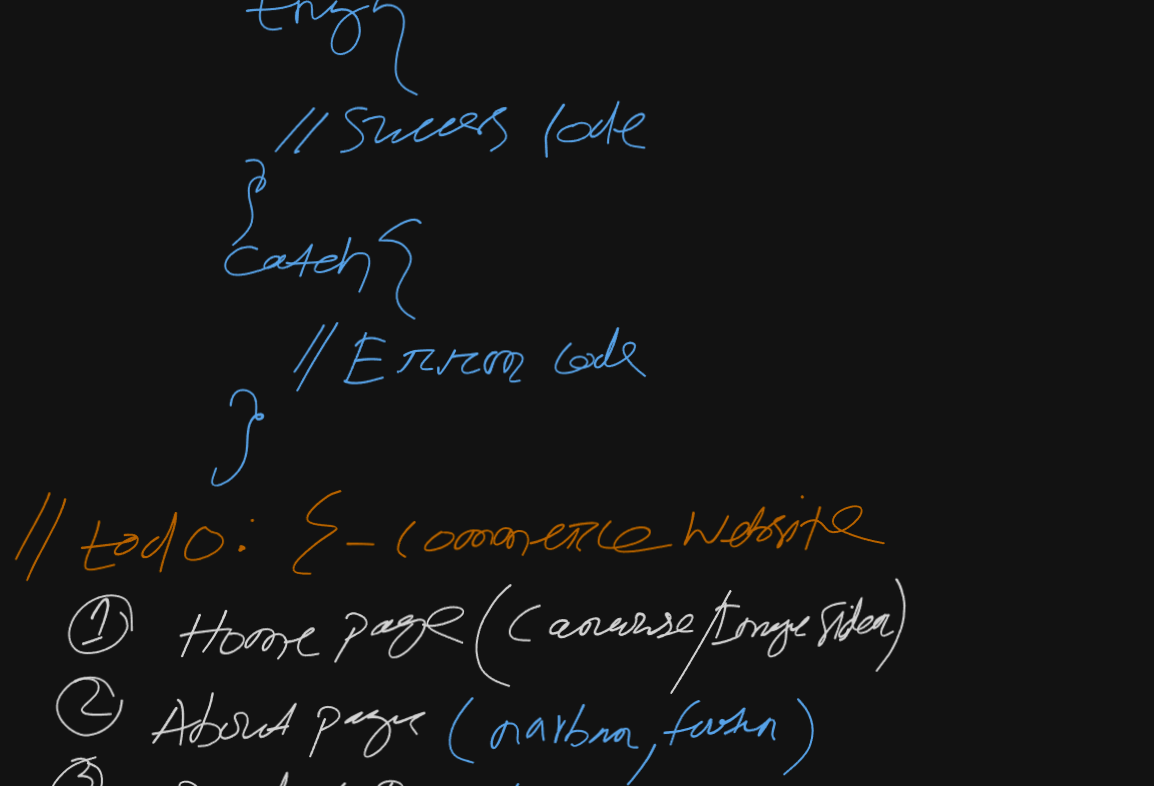 try{
//Success code
}
catch{
//Error code
}
//todo: E-commerce website
① Home page (Carousel/Image Slider)
② About page (navbar, footer)
③